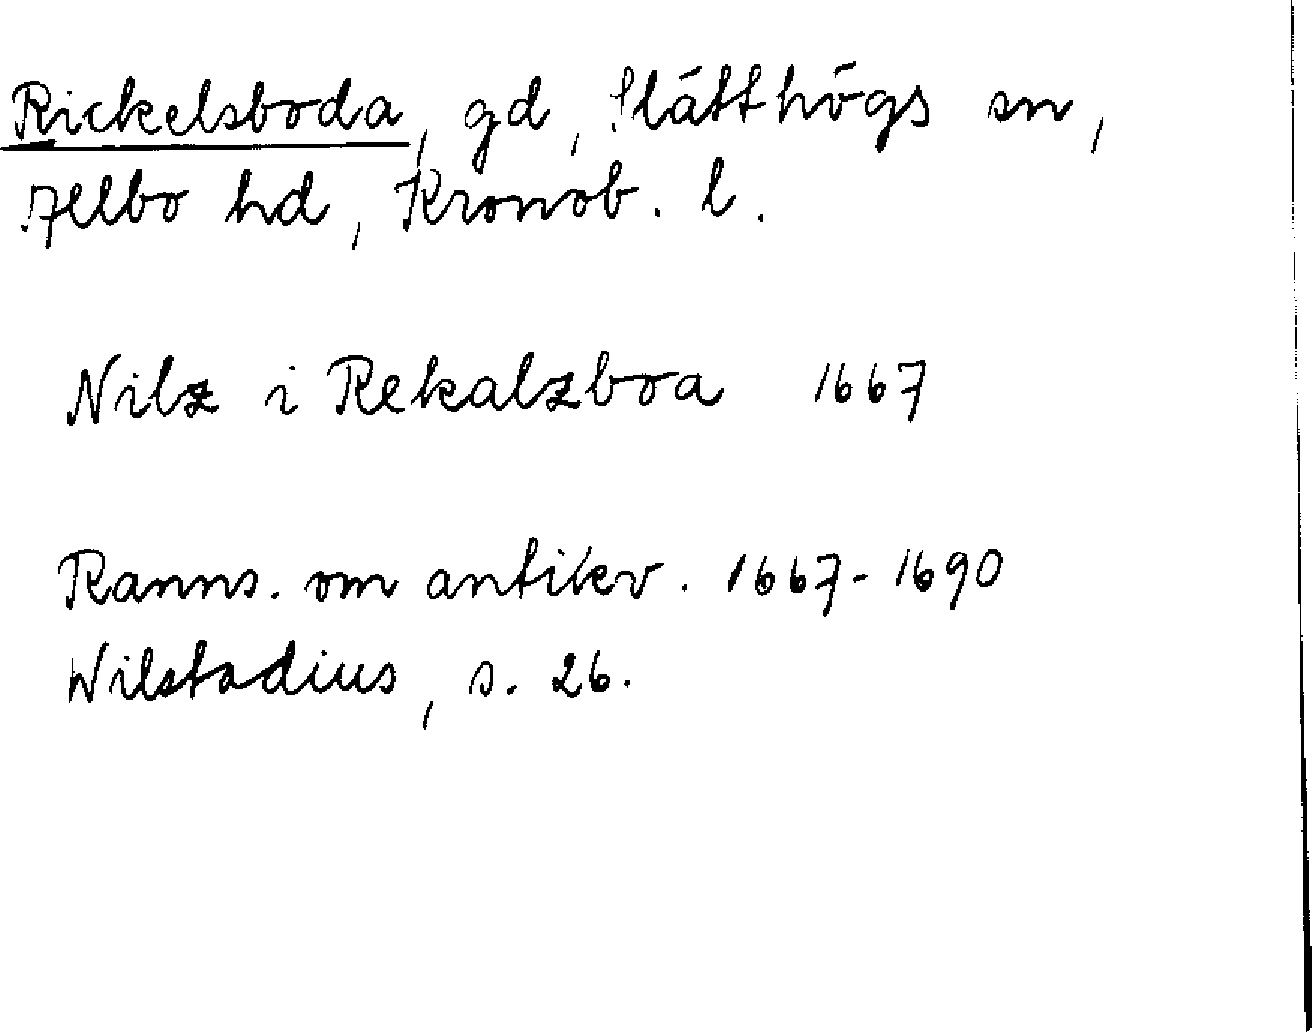 Rickelsboda, gd, Slätthögs sn,
Allbo hd, Kronob. l.
Nilz i Rekalzboa 1667
Ranns. om antikv. 1667-1690
Wilstadius, s. 26.